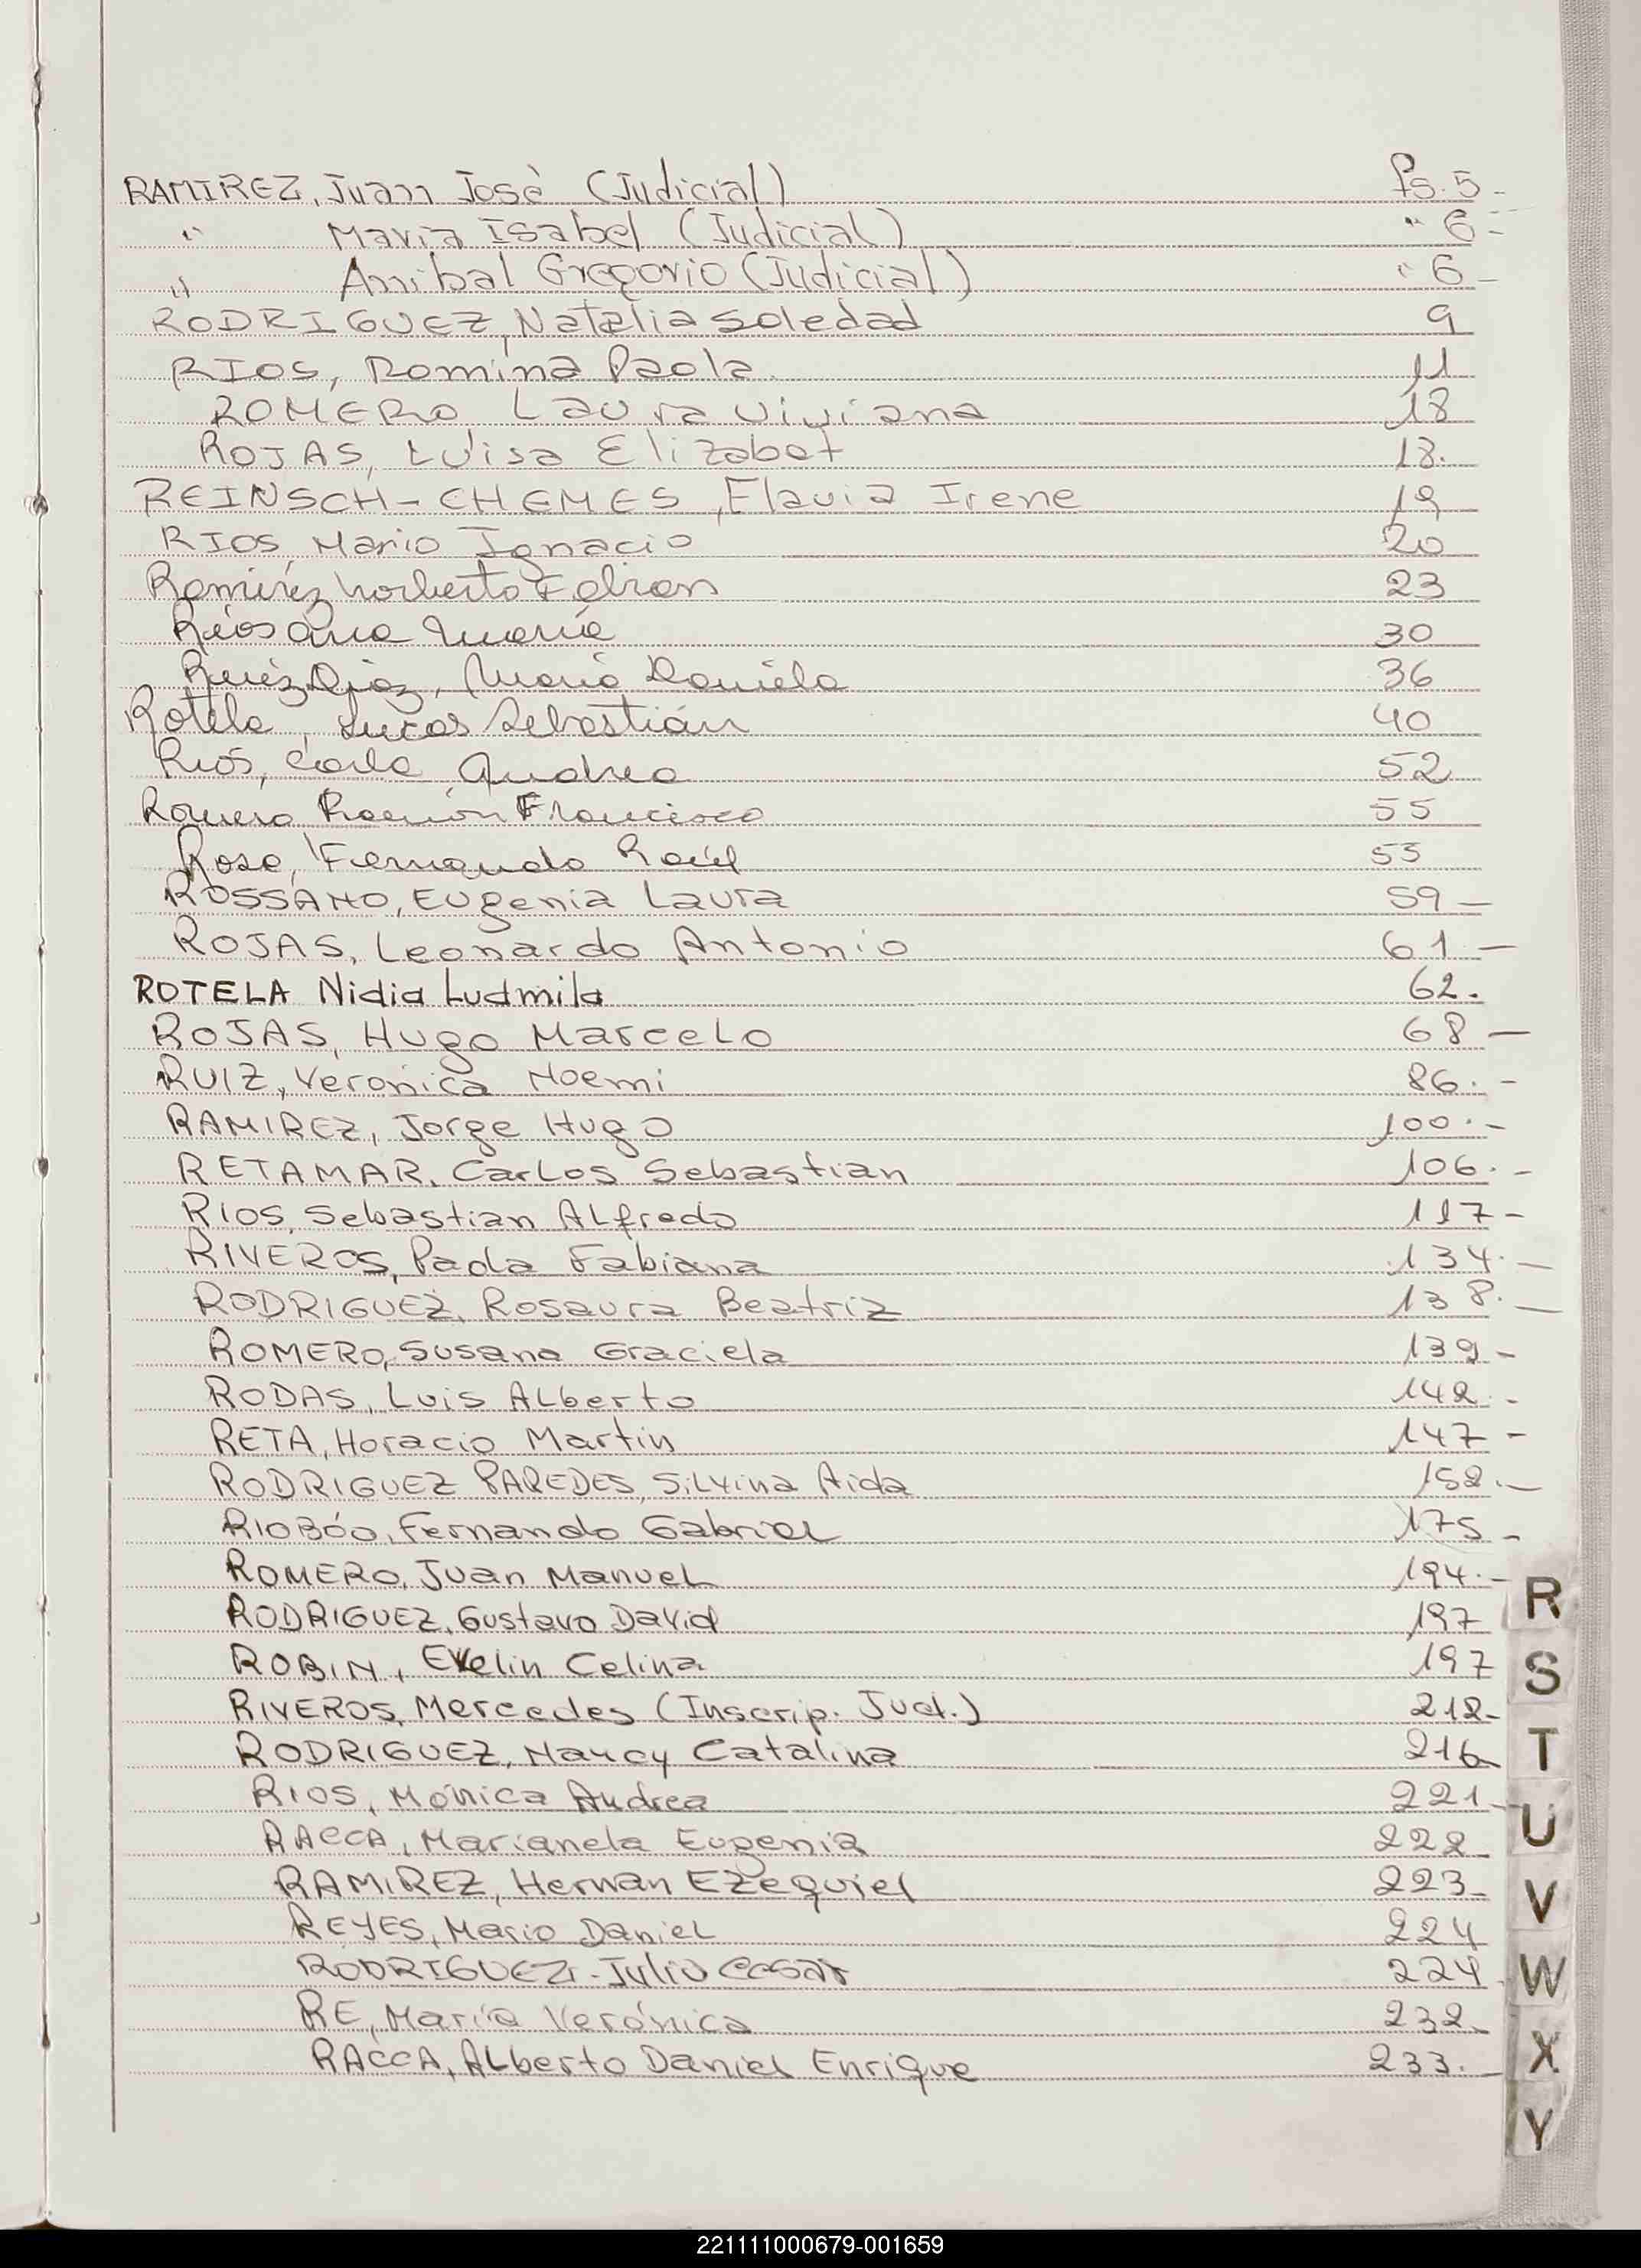 RAMIREZ, Juan José (Judicial) Ps. 5-
" Maria Isabel (Judicial) " 6-
" Anibal Gregorio (Judicial) " 6-
RODRIGUEZ, Natalia Soledad 9
RIOS, Romina Paola 11
ROMERO, Laura Viviana 18
ROJAS, Luisa Elizabet 18.
REINSCH-CHEMES, Flavia Irene 19
RIOS, Mario Ignacio 20
Ramirez Norberto Fabian 23
Rios Ana María 30
Ruiz Diaz, María Daniela 36
Rotela, Lucas Sebastián 40
Rios, Carla Andrea 52
Romero Ramón Francisco 55
Rosa, Fernando Raúl 55
ROSSANO, Eugenia Laura 59-
ROJAS, Leonardo Antonio 61.-
ROTELA Nidia Ludmila 62.
ROJAS, Hugo Marcelo 68-
RUIZ, Veronica Noemi 86.-
RAMIREZ, Jorge Hugo 100.-
RETAMAR, Carlos Sebastian 106.-
RIOS, Sebastian Alfredo 117-
RIVEROS, Paola Fabiana 134.-
RODRIGUEZ, Rosaura Beatriz 138.-
ROMERO, Susana Graciela 139-
RODAS, Luis Alberto 142.-
RETA, Horacio Martin 147-
RODRIGUEZ PAREDES, Silvina Aida 152.-
RIOBÓO, Fernando Gabriel 175-
ROMERO, Juan Manuel 194.-
RODRIGUEZ, Gustavo David 197
ROBIN, Evelin Celina 197
RIVEROS, Mercedes (Inscrip. Jud.) 212-
RODRIGUEZ, Nancy Catalina 216-
RIOS, Mónica Andrea 221-
RACCA, Marianela Eugenia 222-
RAMIREZ, Hernan Ezequiel 223-
REYES, Mario Daniel 224
RODRIGUEZ,-Julio Cesar 224
RE, María Verónica 232-
RACCA, Alberto Daniel Enrique 233.-
R
S
T
U
V
W
X
Y
221111000679-001659